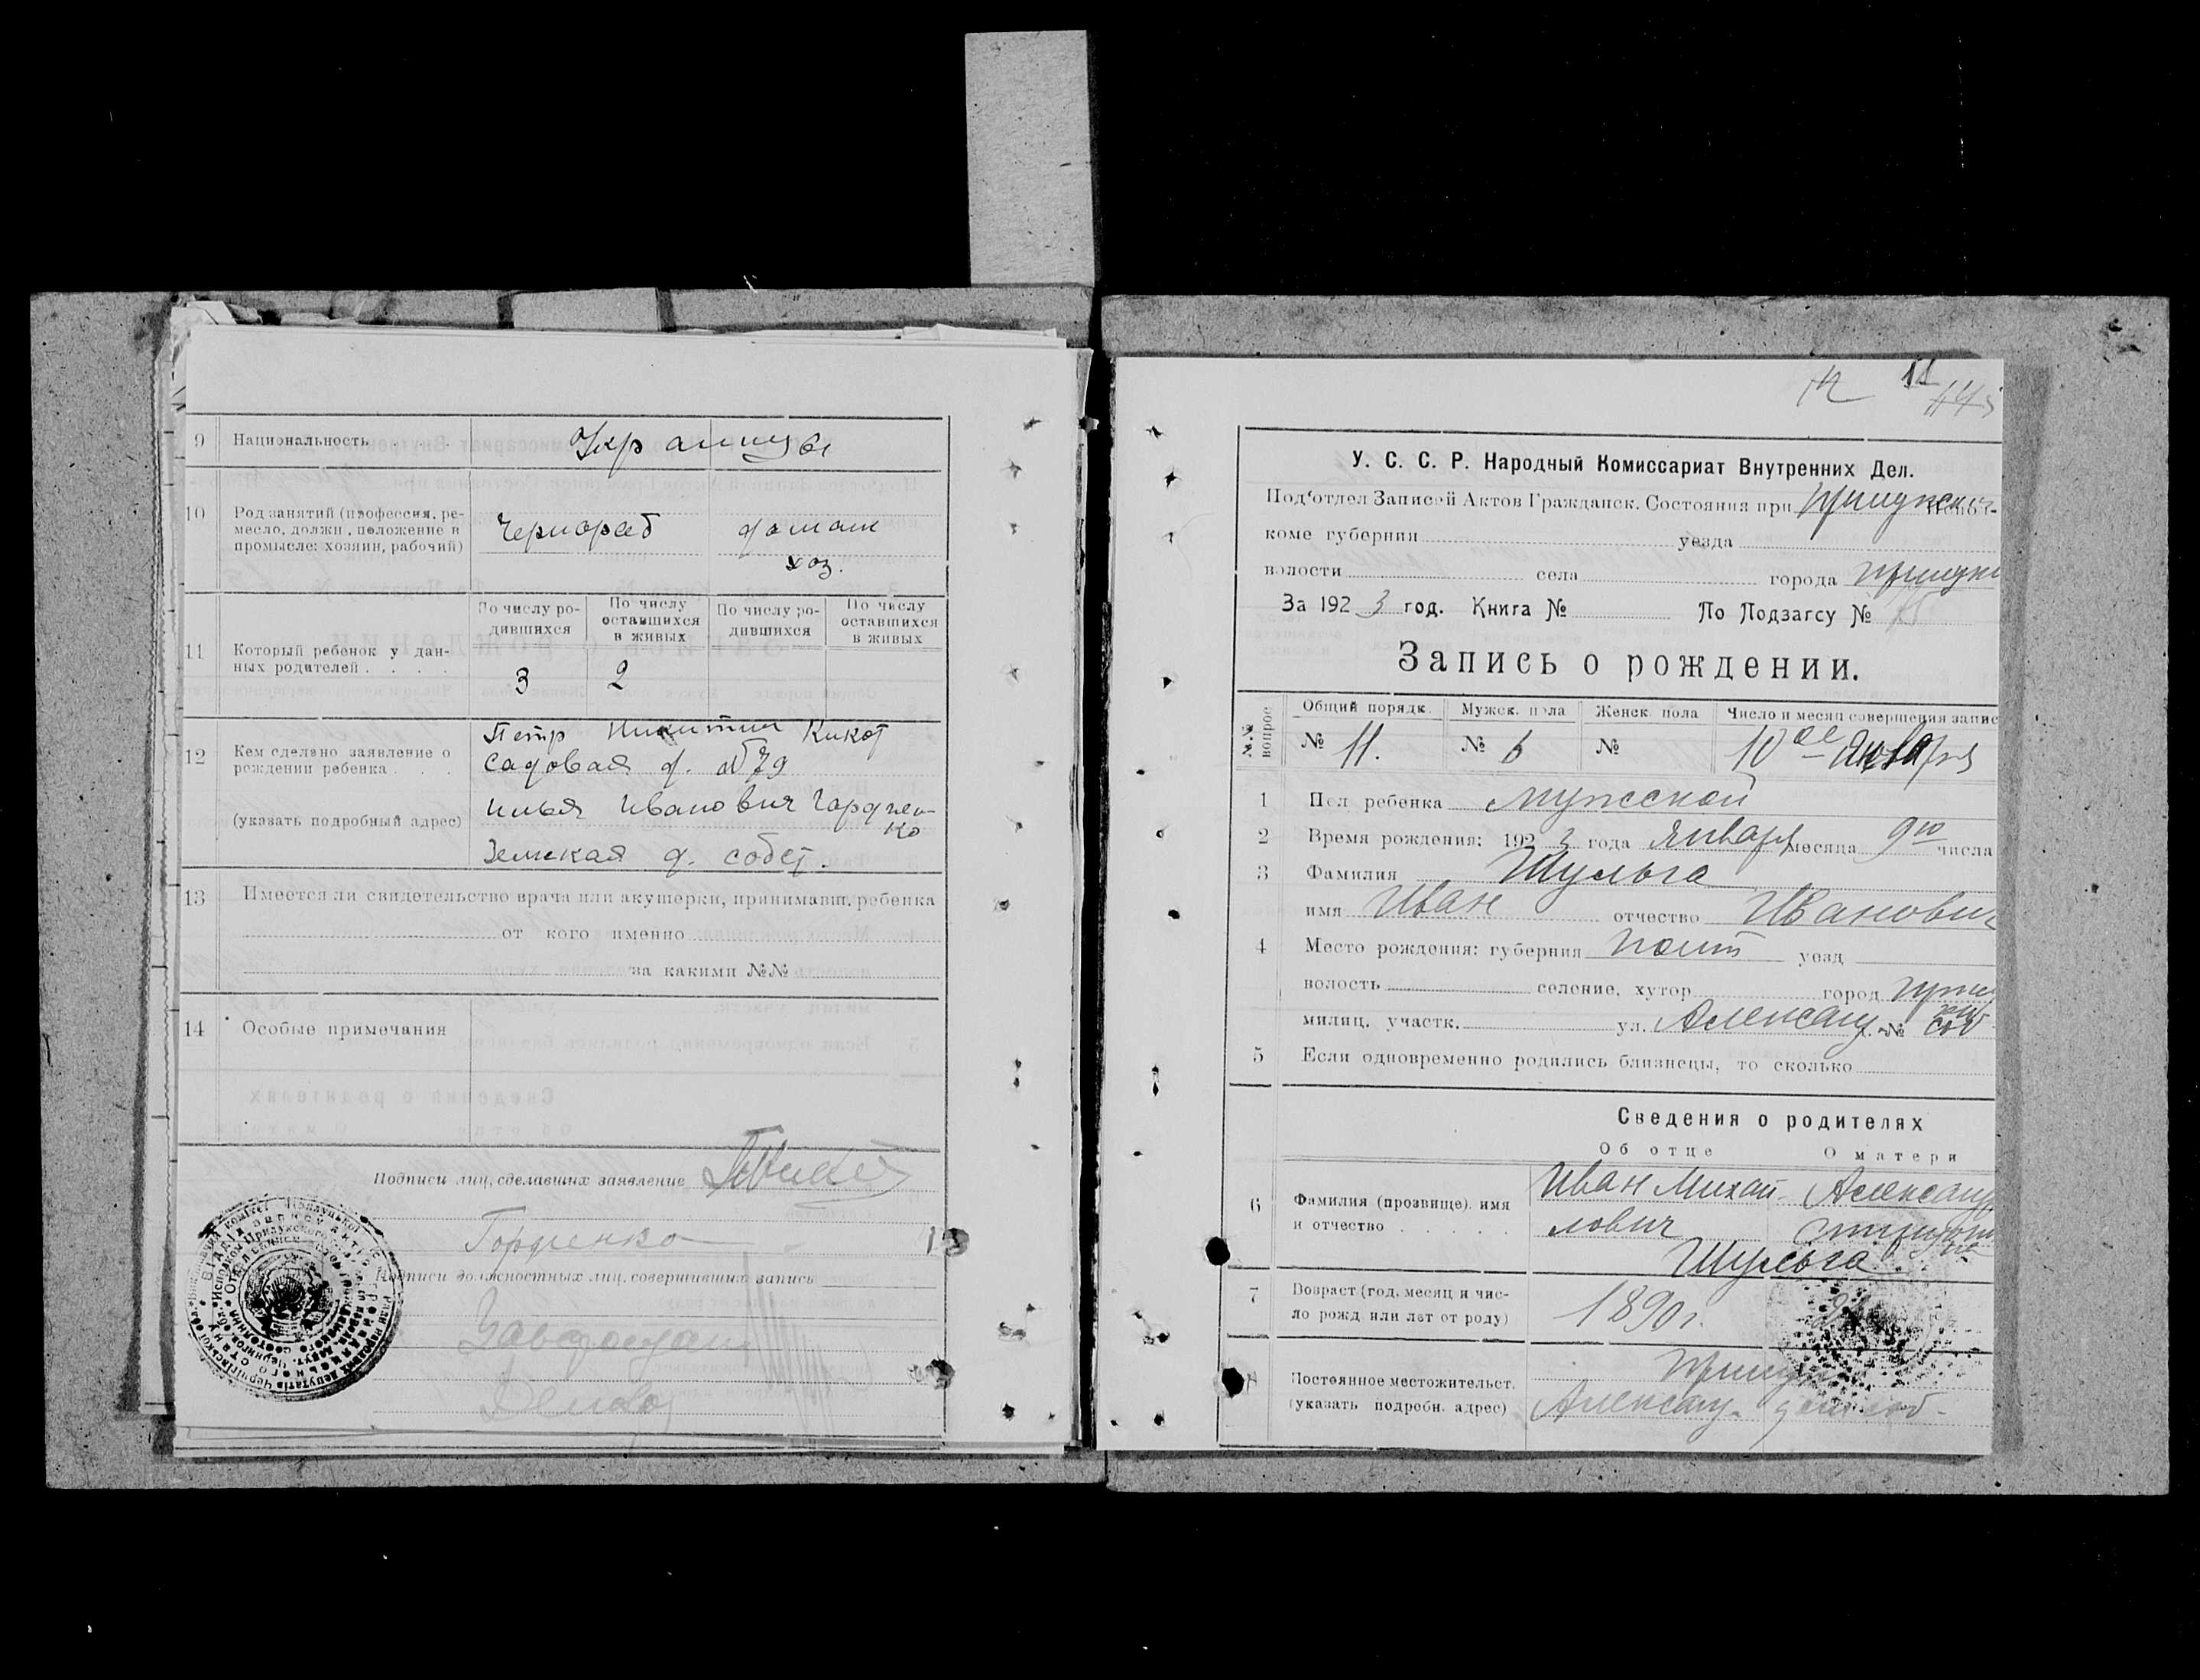 9 Национальность Украинцы
10 Род занятий (профессия, ре-
месло, должн., положение в
промысле: хозяин, рабочий)
Чернораб домаш
хоз.
По числу ро-
дившихся
По числу
оставшихся
в живых
По числу ро-
дившихся
По числу
оставшихся
в живых
11 Который ребенок у дан-
ных родителей
3 2
12 Кем сделано заявление о
рождении ребенка
(указать подробный адрес)
Петр Никитич Кикот
Садовая д. №79
Илья Иванович Гордиен-
ко
Земская д. собст.
13 Имеется ли свидетельство врача или акушерки, принимавш. ребенка
от кого именно
за какими №№
14 Особые примечания
Подписи лиц, сделавших заявление
Гордиенко
Подписи должностных лиц, совершивших запись
11
У. С. С. Р. Народный Комиссариат Внутренних Дел.
Под'отдел Записей Актов Гражданск. Состояния при
коме губернии уезда
волости села города
За 1923 год. Книга № По Подзагсу №
Запись о рождении.
№№ вопрос
Общий порядк. Мужск. пола Женск. пола Число и месяц совершения запис
№ 11. № 6 № 10 января
1 Пол ребенка мужской
2 Время рождения: 1923 года января месяца 9го числа
3 Фамилия Шульга
имя Иван отчество Иванович
4 Место рождения: губерния Полт уезд
волость селение, хутор город
милиц. участк. ул. Александ. № соб
5 Если одновременно родились близнецы, то сколько
Сведения о родителях
Об отце О матери
6 Фамилия (прозвище), имя
и отчество
Иван Михай-
лович
Александ
Шульга
7 Возраст (год, месяц и чис-
ло рожд. или лет от роду)
1890 г.
Постоянное местожительст.
(указать подробн. адрес)
Александ. дом соб.